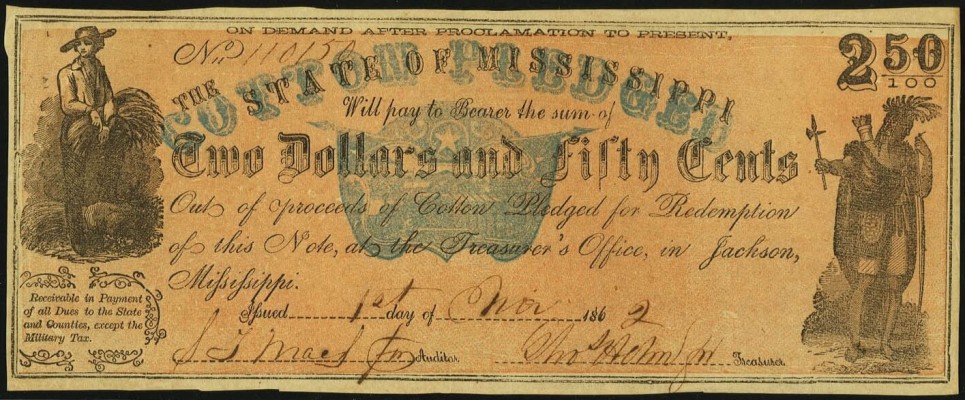 ON DEMAND AFTER PROCLAMATION TO PRESENT,
No. 110150
COTTON PLEDGED
THE STATE OF MISSISSIPPI
2 50/100
Will pay to Bearer the sum of
Two Dollars and Fifty Cents
Out of proceeds of Cotton Pledged for Redemption
of this Note, at the Treasurer's Office, in Jackson,
Mississippi.
Issued 1st day of Nov 1862
Receivable in Payment
of all Dues to the State
and Counties, except the
Military Tax.
Auditor.
Treasurer.